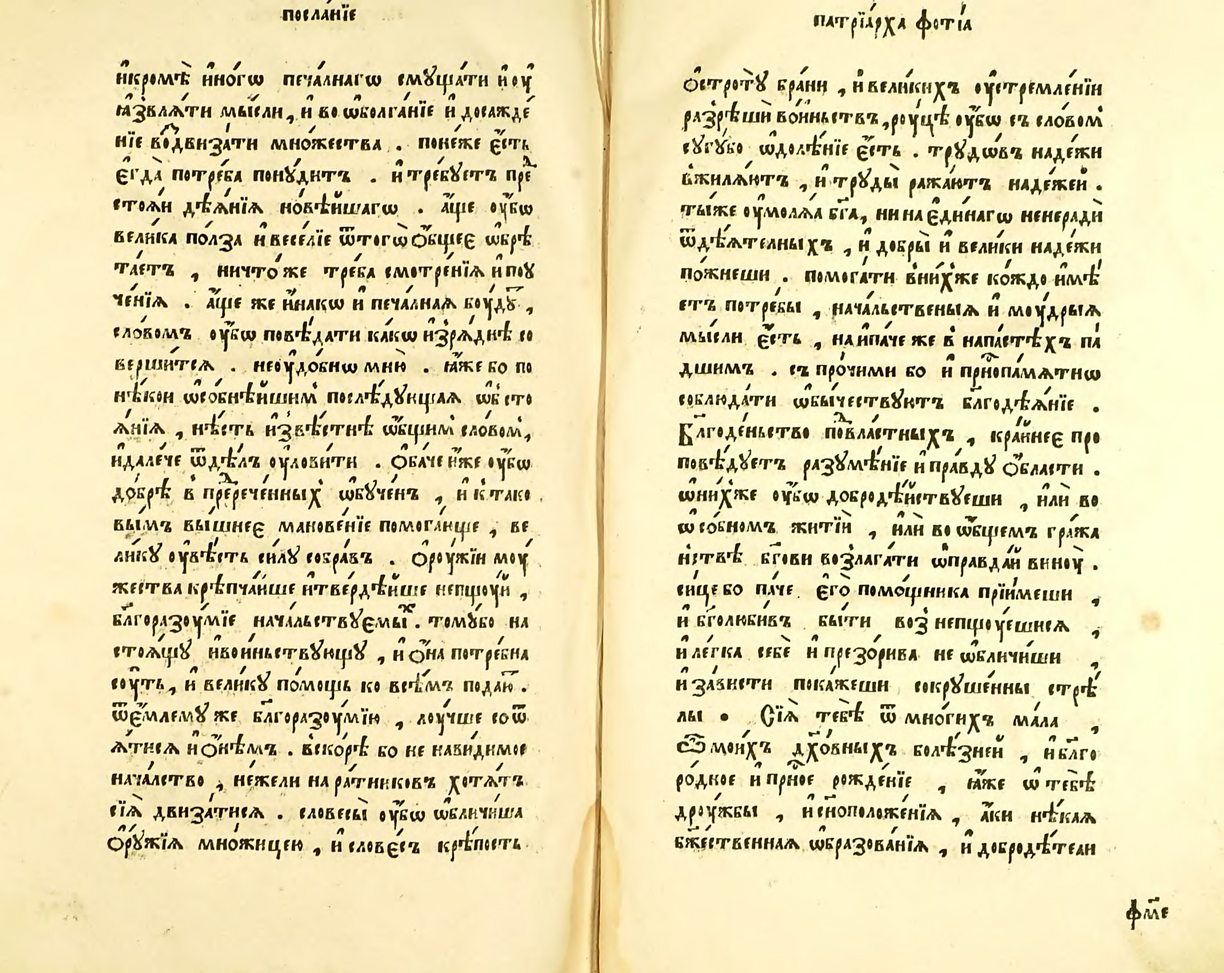 посла́нїе
и҆кромѣ̀ и҆но́гѡ печа́лнагѡ смꙋща́ти и҆ оу҆
ꙗ҆звлѧ́ти мы́сли, и҆ во ѡ҆болга́нїе и҆ досажде́
нїе в̾одвиза́ти мно́жества . поне́же є҆́сть
є҆гда̀ потре́ба понꙋ́дитъ . и҆ тре́бꙋетъ пре
стоѧ́и дѣѧ́нїѧ новѣ́йшагѡ . а҆́ще оу҆́бѡ
вели́ка по́лза и҆ весе́лїе ѿтогѡ̀ о҆́бщеє ѡ҆брѣ
та́етъ , ничто́же тре́ба смотре́нїѧ и҆ поу
че́нїѧ . а҆́ще же и҆на́кѡ и҆ печа́лнаѧ бо́удꙋ̀ ,
сло́вомъ оу҆́бѡ повѣ́дати ка́кѡ и҆зрѧ́днѣ со
верши́тсѧ . неоу҆до́бнѡ мню̀ . ꙗ҆́же бо по
нѣ́кои ѡ҆собнѣ́йшим послѣ́дꙋющаѧ ѡ҆бсто
ѧ́нїѧ , нѣ́сть и҆звѣ́стнѣ ѡ҆́бщим сло́вом,
и҆дале́че ѿдѣ́лъ оу҆лови́ти . о҆ба́че и҆́же оу҆́бѡ
до́брѣ в̾ пререче́нныхъ ѡ҆бꙋче́нъ , и҆ к̾ тако
вы́мъ вы́шнеє манове́нїе помога́юще , ве
ли́кꙋ оу҆вѣ́сть си́лꙋ собра́въ . о҆роу́жїи моу́
жества крѣпча́йше и҆ тверде́йше непщо́уй ,
бл҃горазоу́мїе нача́льствꙋємых . томꙋ́бо на
стоѧ́щꙋ и҆ во́иньствꙋющꙋ , и҆ о҆на̀ потре́бна
со́уть, и҆ вели́кꙋ по́мощь ко всѣ́мъ подаю̀ .
ѿе́млемꙋ же бл҃горазоу́мїю , лоу́чше со ѿ
ѧ́тисѧ и҆ о҆нѣ́мъ . в̾ско́рѣ бо не нави́димое
нача́лство , не́жели на ра́тниковъ хотѧ́тъ
сїѧ̀ двиза́тисѧ . словесы̀ оу҆́бѡ ѡ҆бличи́ша
о҆рꙋ́жїѧ мно́жицею , и҆ слове́съ крѣ́пость
патрїа́рха фо́тїа
о҆стротꙋ̀ бра́ни , и҆ вели́кихъ оу҆стремле́нїи
разрѣшѝ во́иньствъ , роу́цѣ оу҆́бѡ съ сло́вом
сꙋгꙋ́бо ѡ҆долѣ́нїе є҆́сть . трꙋдѡ́въ наде́жи
в̾жилѧ́ютъ , и҆ трꙋды̀ ража́ютъ наде́жей .
ты́же оу҆молѧ́а бг҃а, ни на є҆ди́нагѡ ненерадѝ
ѿдѣѧ́телныхъ , и҆ до́бры и҆ вели́ки наде́жи
по́жнеши . помога́ти в̾ни́хже ко́ждо и҆мѣ́
етъ потре́бы , нача́льственыѧ и҆ моу́дрыѧ
мы́сли є҆́сть , наи҆па́че же в̾ напа́стѣхъ па́
дшимъ . съ про́чими бо и҆ приопа́мѧтнѡ
соблюда́ти ѡ҆бы́чествꙋютъ бл҃годѣѧ́нїе .
Бл҃годе́ньство повла́стныхъ , кра́йнеє про
повѣ́дꙋетъ разꙋмѣ́нїе и҆ пра́вдꙋ о҆́бласти .
ѡ҆ни́хже оу҆́бѡ добродѣ́йствꙋеши , и҆лѝ во
ѡ҆со́бномъ житїѝ , и҆лѝ во ѡ҆́бщемъ гра́жа
нствѣ бг҃ови возлага́ти ѡ҆правда́й вино́у .
си́це бо па́че є҆го̀ помо́щника прїи́меши ,
и҆ бг҃олю́бивъ бы́ти воз̾ непщоу́ешисѧ ,
и҆ ле́гка себѐ и҆ презори́ва не ѡ҆бличи́ши ,
и҆ за́висти пока́жеши сокрꙋше́нны стрѣ́
лы . Сїѧ̀ тебѣ̀ ѿ мно́гихъ ма́ла ,
Ѿ мои́хъ дх҃о́вныхъ болѣ́зней , и҆ бл҃го
ро́дное и҆ прⷭ҇ное рожде́нїе , ꙗ҆́же ѡ҆ тебѣ̀
дроу́жбы , и҆ сн҃оположе́нїѧ , а҆́ки нѣ́каѧ
бж҃е́ственнаѧ ѡ҆бразова́нїѧ , и҆ добродѣ́тели
фм҃е